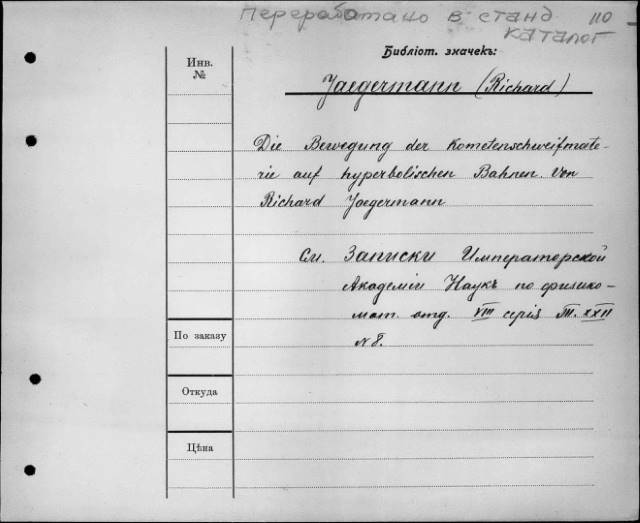 Переработано в станд 110
каталог
Библіот. значекъ:
Инв.
№
Jaegermann (Richard)
Die Bewegung der Kometenschweifmate-
rie auf hyperbolischen Bahnen. Von
Richard Jaegermann
См. Записки Императорской
Академіи Наукъ по физико-
мат. отд. VIII серія Т. XXII
N 8.
По заказу
Откуда
Цѣна